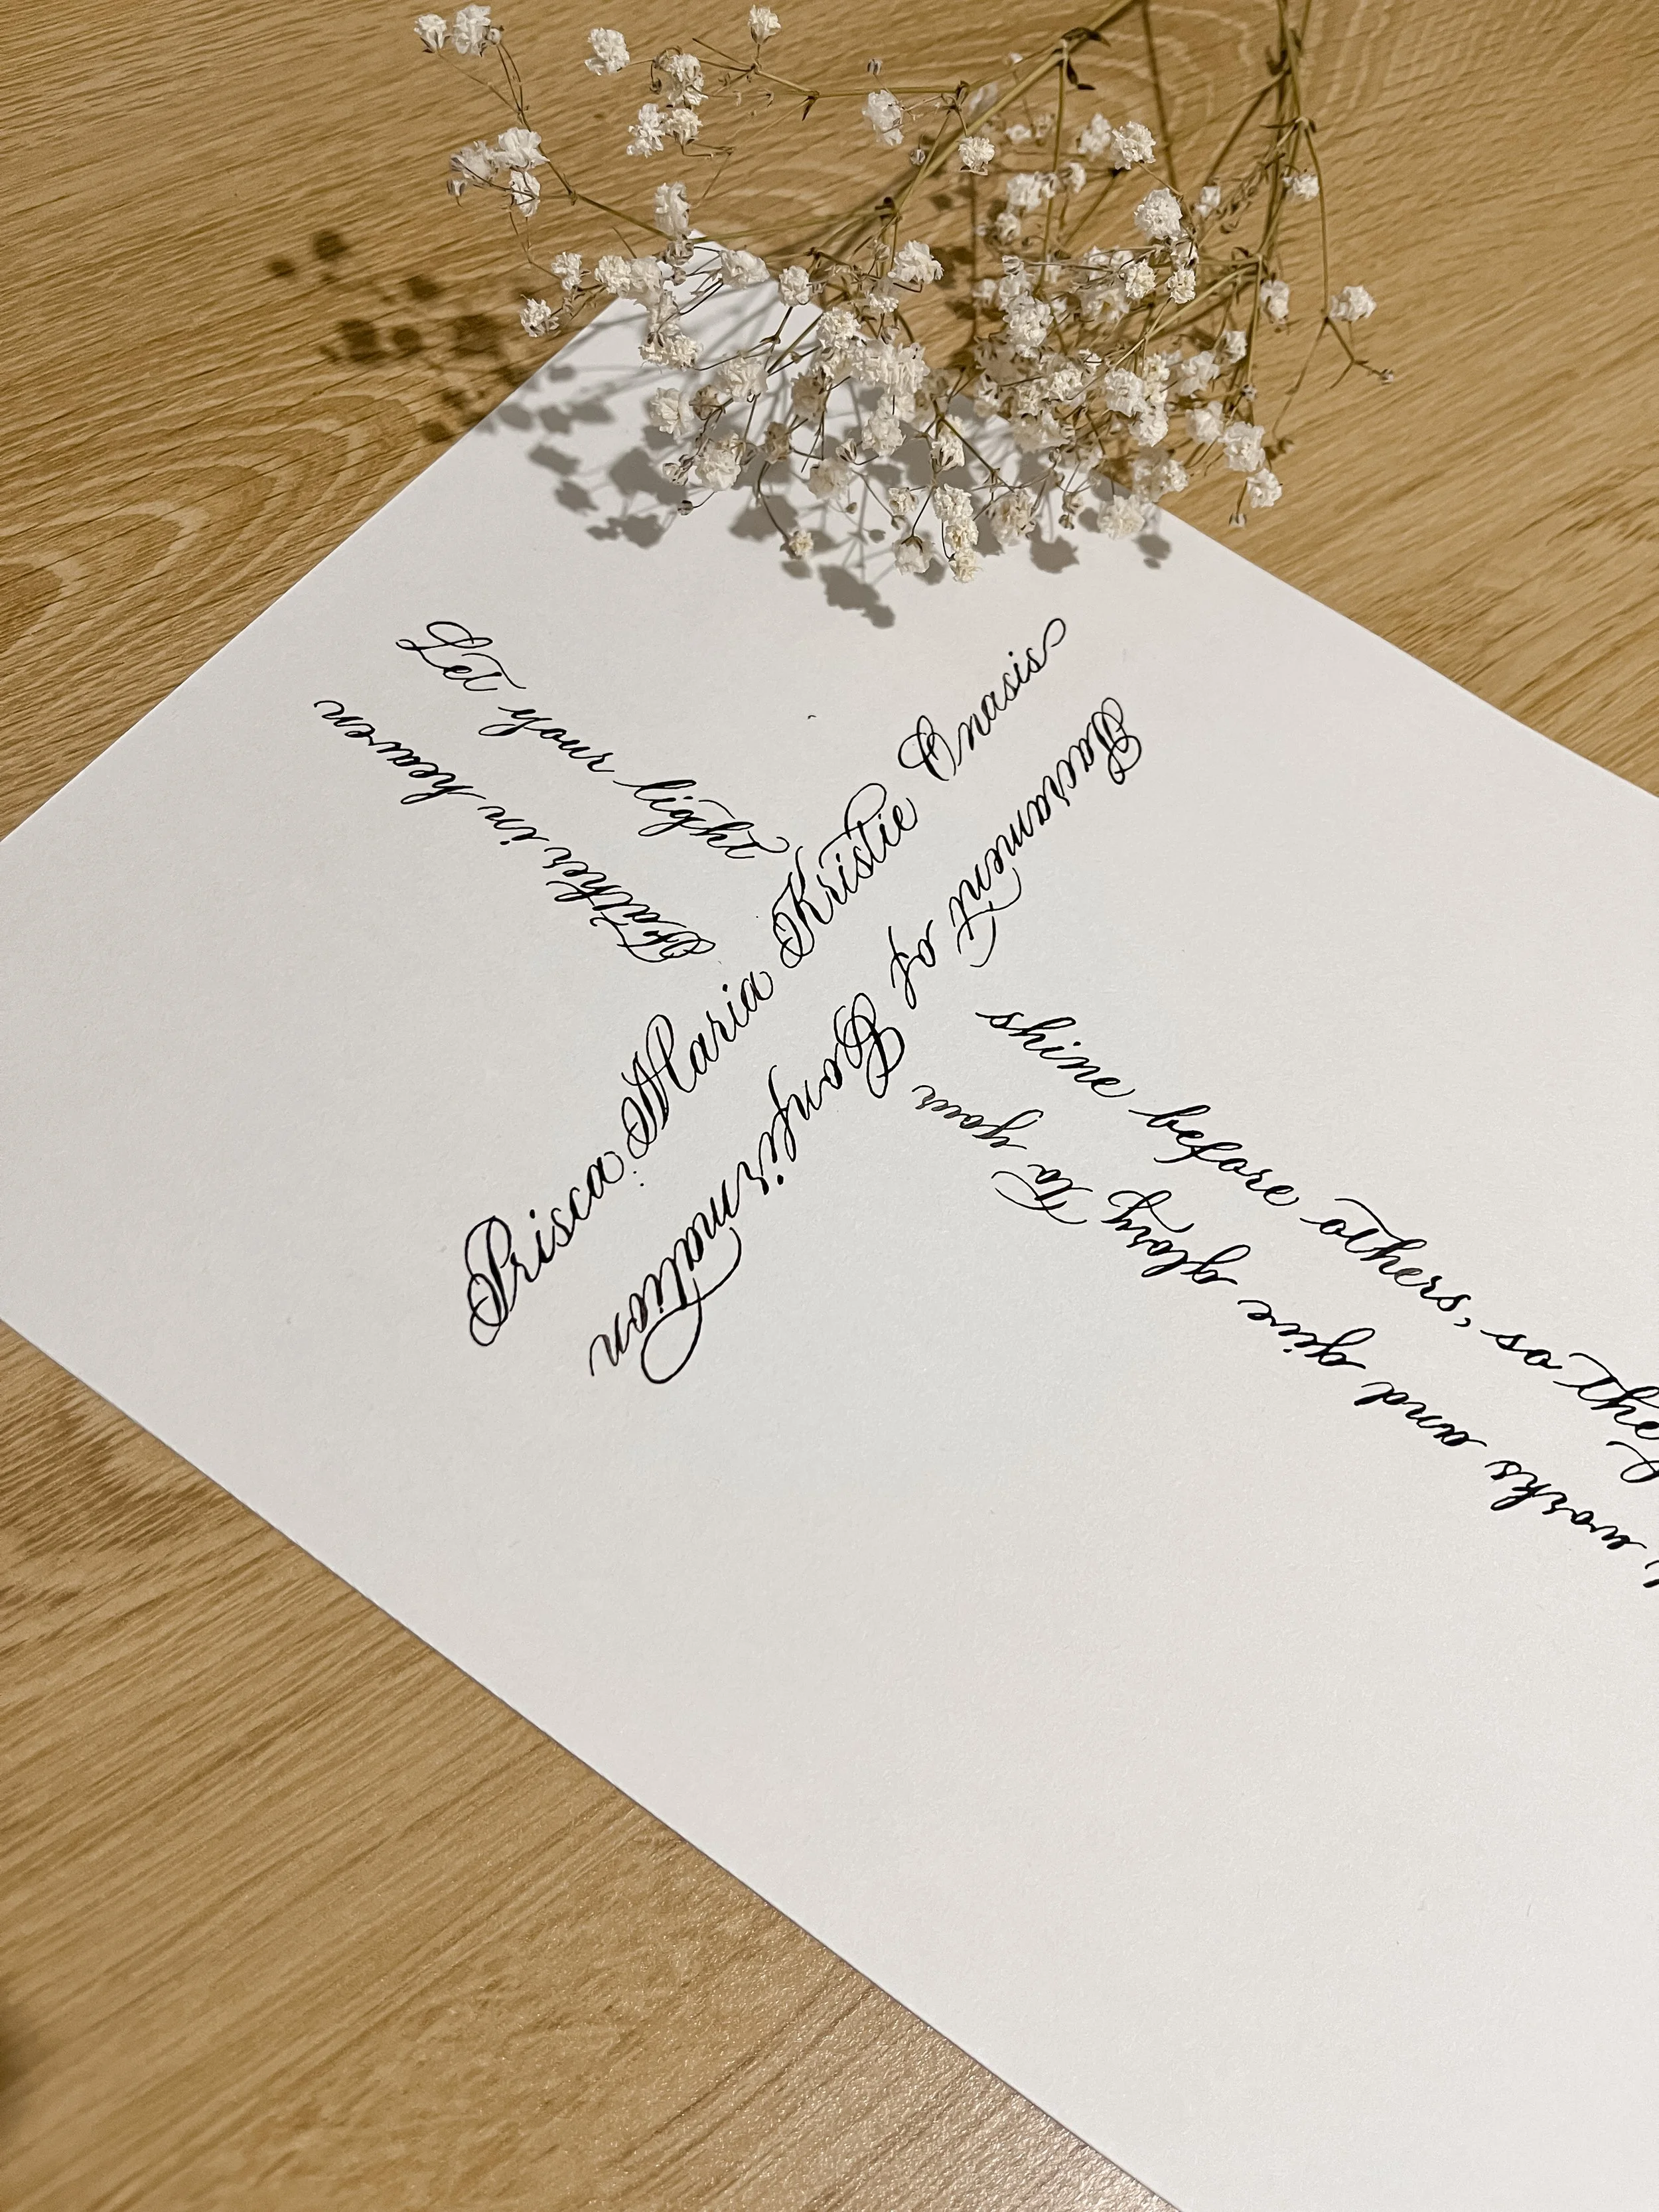 Let your light
Prisca Maria Kristie Onasis
Sacrament of Confirmation
shine before others, so they
works and give glory to your
Father in heaven